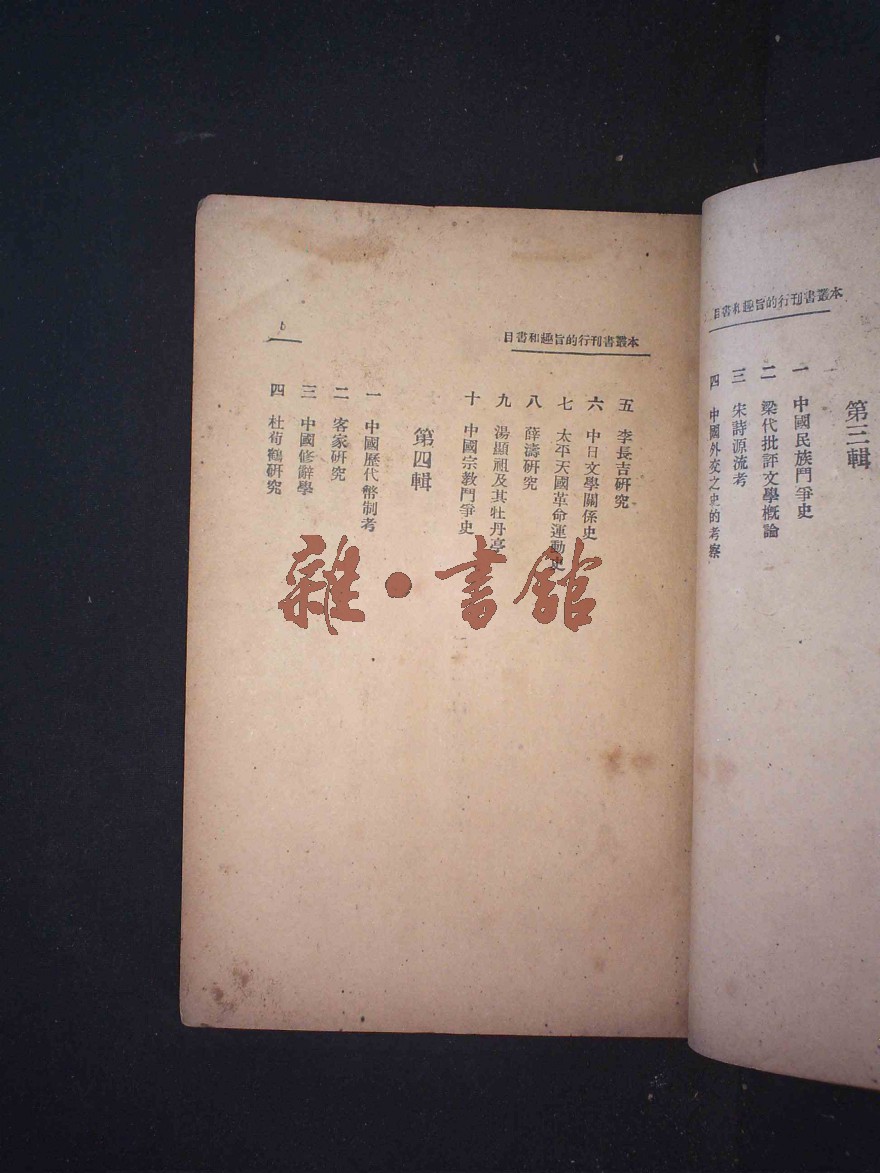 本叢書刊行的旨趣和書目
第三輯
一 中國民族鬥爭史
二 梁代批評文學概論
三 宋詩源流考
四 中國外交之史的考察
本叢書刊行的旨趣和書目
五 李長吉研究
六 中日文學關係史
七 太平天國革命運動史
八 薛濤研究
九 湯顯祖及其牡丹亭
十 中國宗教鬥爭史
第四輯
一 中國歷代幣制考
二 客家研究
三 中國修辭學
四 杜荀鶴研究
雜·書館